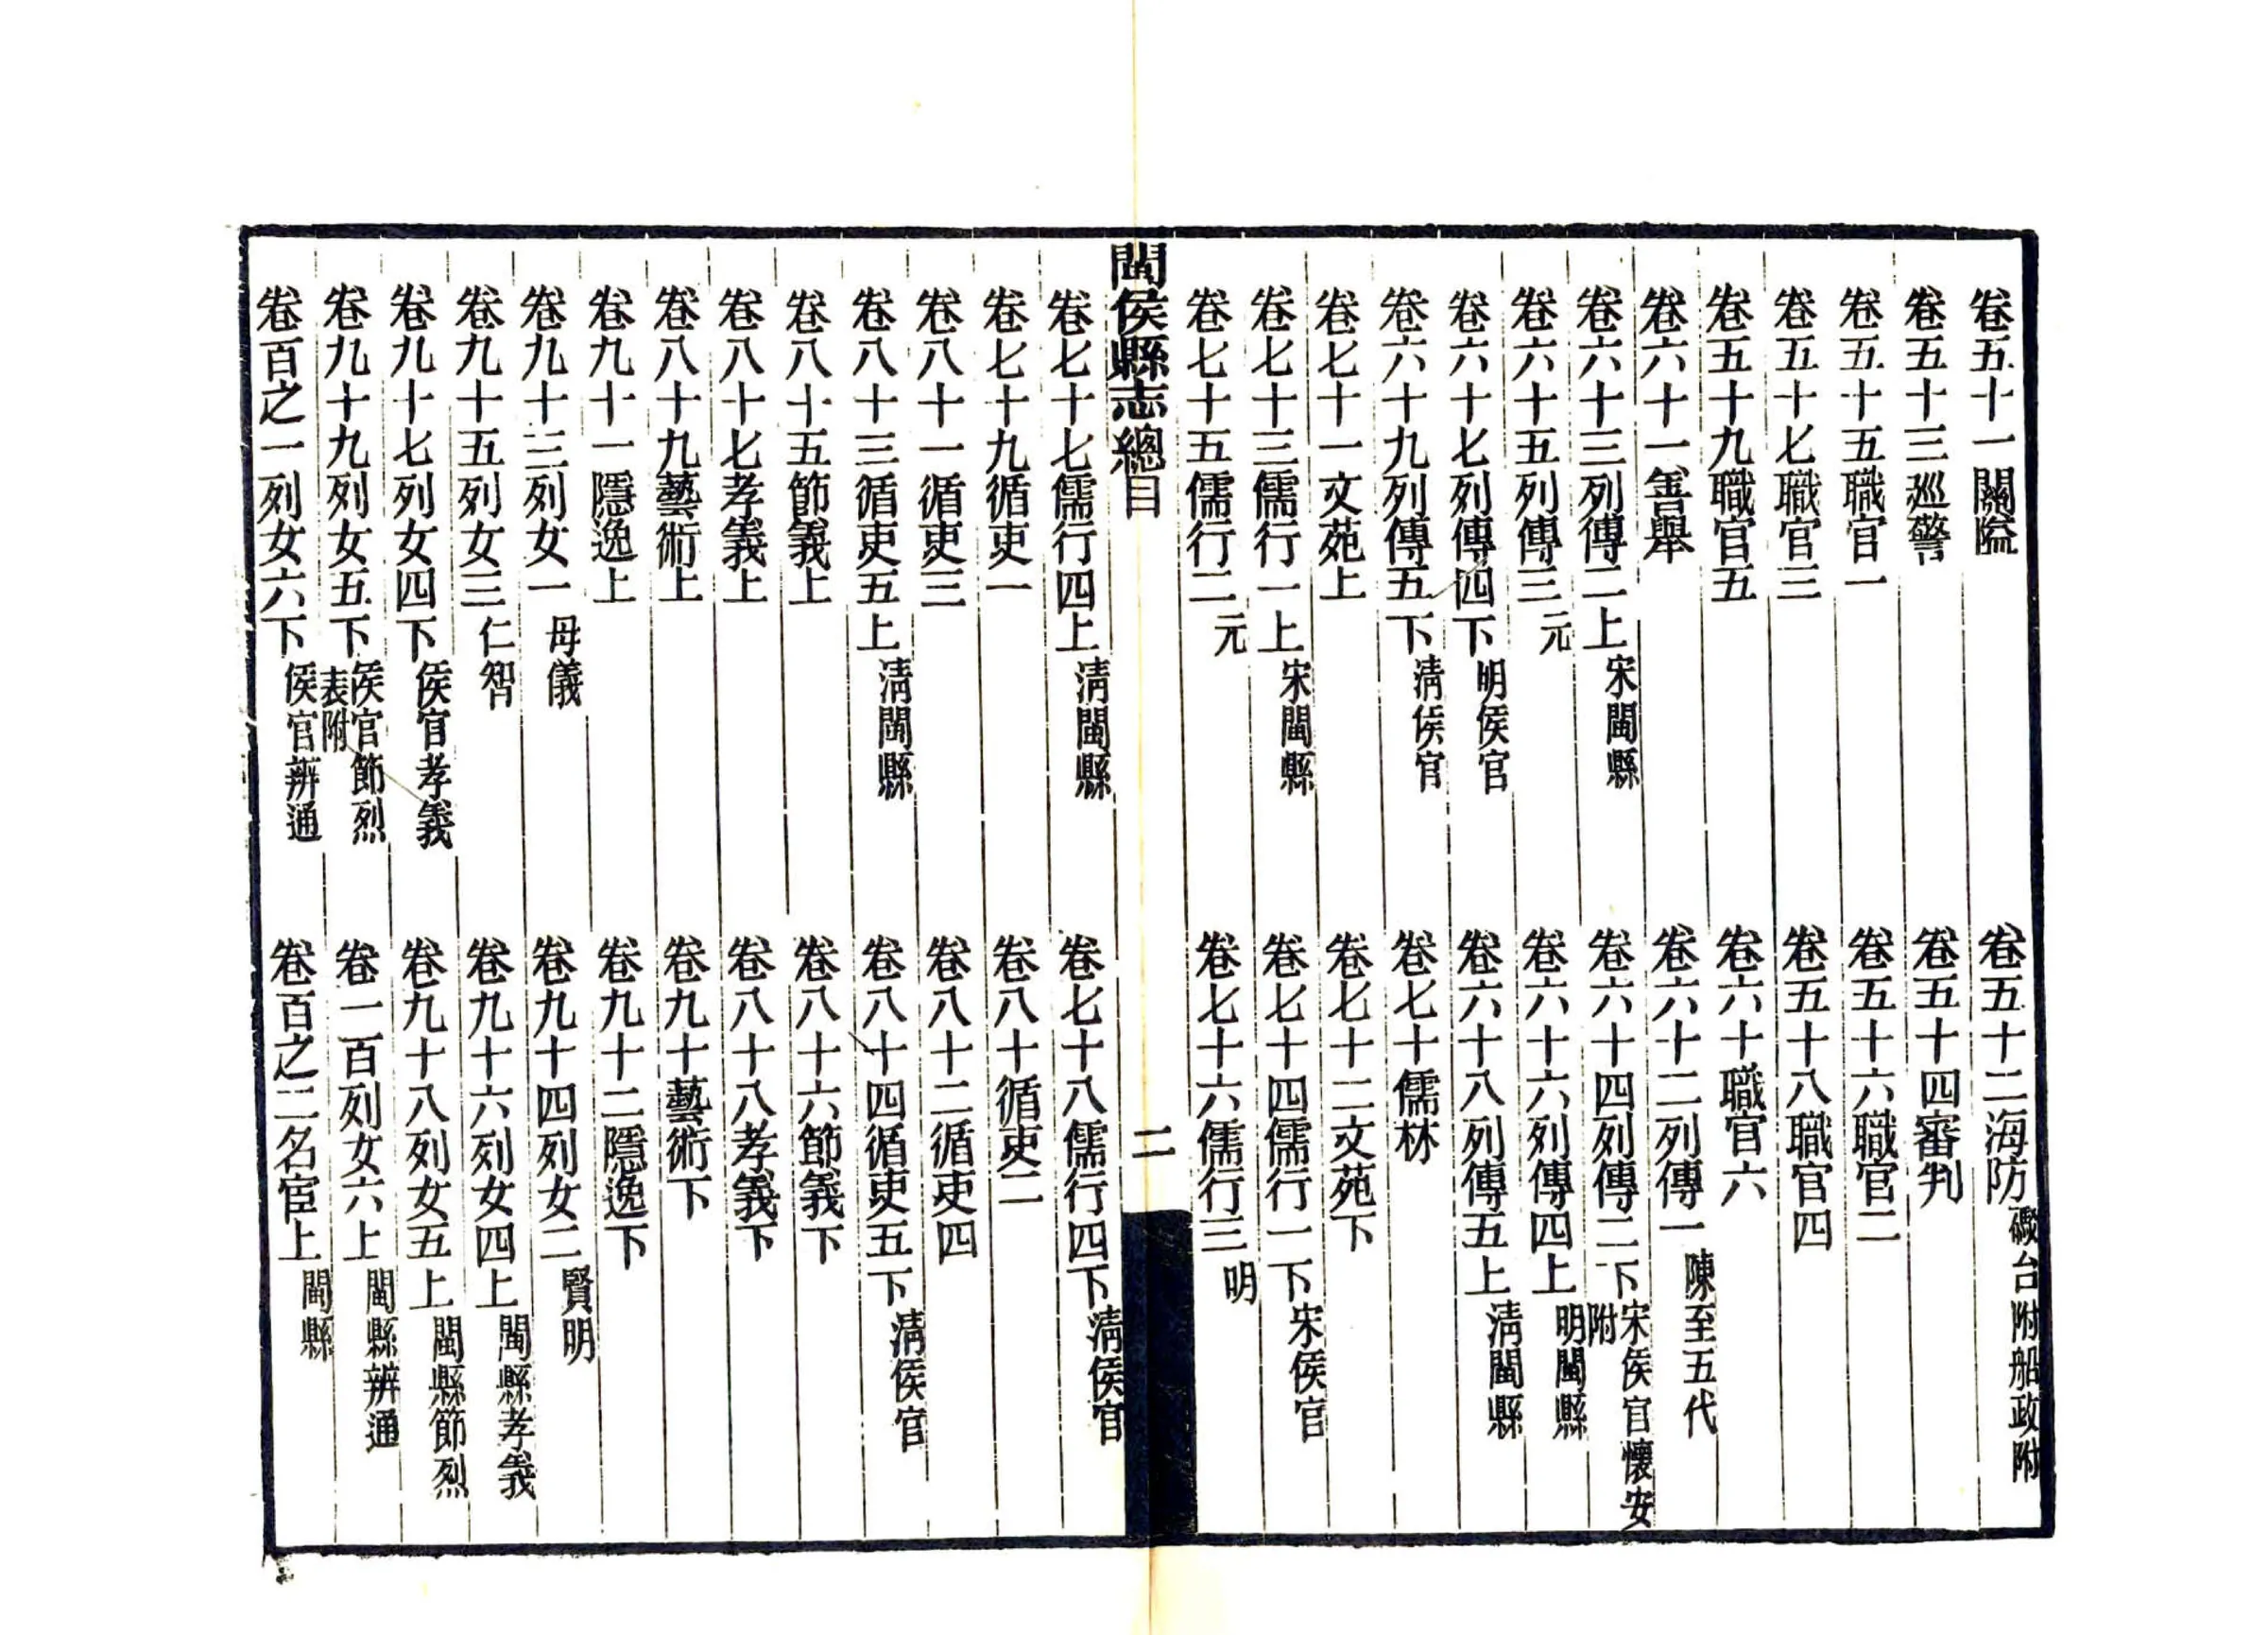 卷五十一關隘　卷五十二海防礮台附船政附
卷五十三巡警　卷五十四審判
卷五十五職官一　卷五十六職官二
卷五十七職官三　卷五十八職官四
卷五十九職官五　卷六十職官六
卷六十一舉　卷六十二列傳一陳至五代
卷六十三列傳二上宋閩縣　卷六十四列傳二下宋侯官懷安附
卷六十五列傳三元　卷六十六列傳四上明閩縣
卷六十七列傳四下明侯官　卷六十八列傳五上清閩縣
卷六十九列傳五下清侯官　卷七十儒林
卷七十一文苑上　卷七十二文苑下
卷七十三儒行一上宋閩縣　卷七十四儒行一下宋侯官
卷七十五儒行二元　卷七十六儒行三明
閩侯縣志總目　二
卷七十七儒行四上清閩縣　卷七十八儒行四下清侯官
卷七十九循吏一　卷八十循吏二
卷八十一循吏三　卷八十二循吏四
卷八十三循吏五上清閩縣　卷八十四循吏五下清侯官
卷八十五節義上　卷八十六節義下
卷八十七孝義上　卷八十八孝義下
卷八十九藝術上　卷九十藝術下
卷九十一隱逸上　卷九十二隱逸下
卷九十三列女一母儀　卷九十四列女二賢明
卷九十五列女三仁智　卷九十六列女四上閩縣孝義
卷九十七列女四下侯官孝義　卷九十八列女五上閩縣節烈
卷九十九列女五下侯官節烈表附　卷一百列女六上閩縣辨通
卷百之一列女六下侯官辨通　卷百之二名宦上閩縣